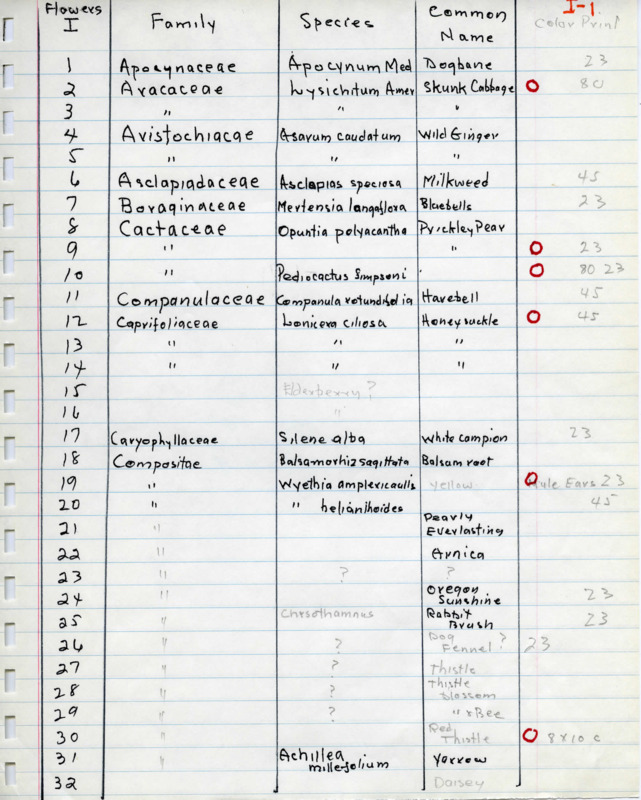 Flowers I Family Species Common Name I-1 Color Print
1 Apocynaceae Apocynum Med Dogbane 23
2 Aracaceae Lysichitum Amer Skunk Cabbage O 80
3 " " "
4 Aristochiacae Asarum caudatum Wild Ginger
5 " " "
6 Asclapiadaceae Asclapias speciosa Milkweed 45
7 Boraginaceae Mertensia langaflora Bluebells 23
8 Cactaceae Opuntia polyacantha Prickley Pear
9 " " O 23
10 " Pediocactus Simpsoni O 80 23
11 Companulaceae Companula rotundifolia Harebell 45
12 Caprifoliaceae Lonicera ciliosa Honeysuckle O 45
13 " " "
14 " " "
15 Elderberry ?
16 "
17 Caryophyllaceae Silene alba White campion 23
18 Compositae Balsamorhiz sagittata Balsam root
19 " Wyethia amplexicaulis yellow O Mule Ears 23
20 " " helianthoides 45
21 " Pearly Everlasting
22 " Arnica
23 " ? ?
24 " Oregon Sunshine 23
25 " Chrsothamnus Rabbit Brush 23
26 " ? Dog Fennel ? 23
27 " ? Thistle
28 " ? Thistle blossom
29 " ? " + Bee
30 " Red Thistle O 8x10 c
31 " Achillea millefolium Yarrow
32 Daisey